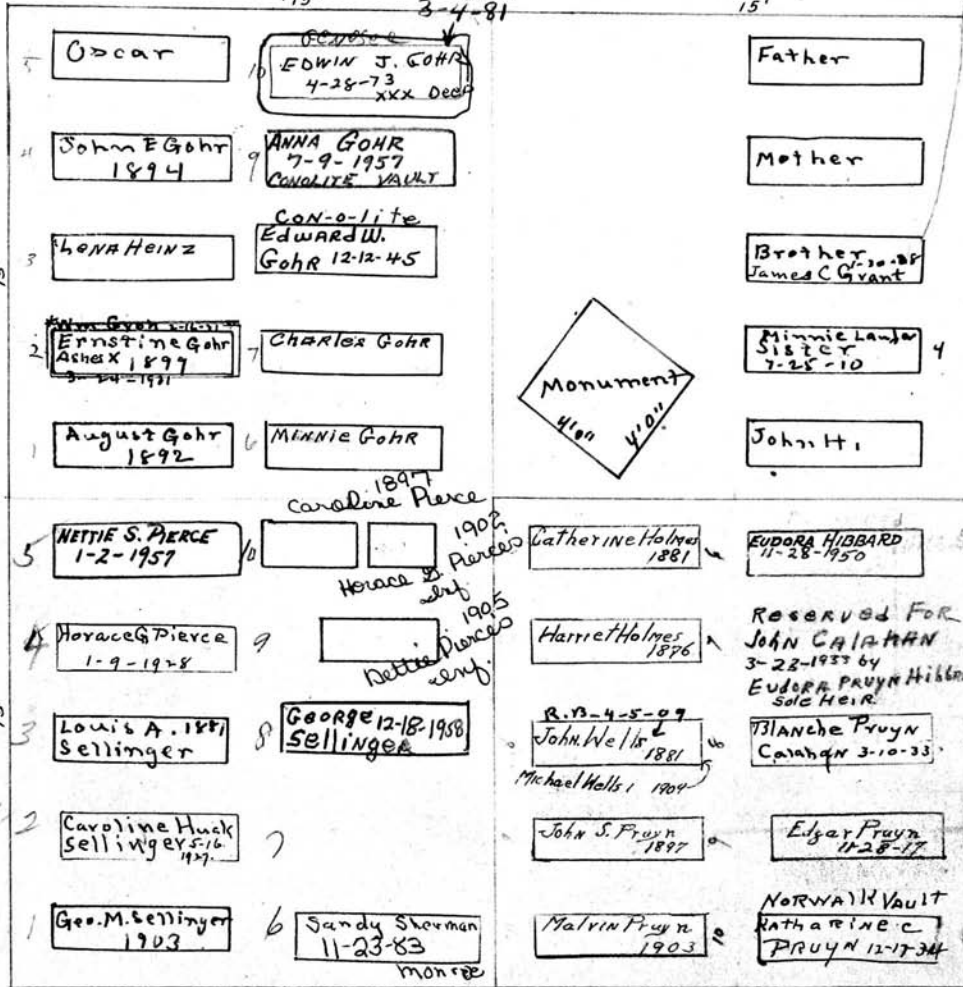 15
3-4-81
15'
5
Oscar
10
EDWIN J. GOHR
4-28-73
XXX Deep
Father
4
John E Gohr
1894
9
ANNA GOHR
7-9-1957
CONOLITE VAULT
Mother
3
LENA HEINZ
CON-O-lite
EDWARD W.
GohR 12-12-45
Brother
James C Grant
2
Ernstine Gohr
Ashes X 1899
7
CHARLES GOHR
Monument
4'0"
4'0"
Minnie
Sister
7-25-10
4
1
August Gohr
1892
6
MINNIE GOHR
John H.
1897
Caroline Pierce
5
NETTIE S. PIERCE
1-2-1957
10
1902
Horace G. Pierce's
inf
Catherine Holmes
1881
EUDORA HIBBARD
11-28-1950
4
Horace G Pierce
1-9-1928
9
1905
Pierce's
inf.
Harriet Holmes
1876
RESERVED FOR
JOHN CALAHAN
3-23-1933 by
EUDORA PRUYN
Sole HEIR
3
Louis A. 1881
Sellinger
8
GEORGE 12-18-1958
SELLINGER
R.B-4-5-09
John. Wells
1881
8
Michael Wells 1909
BlANche PRUYN
Calahan 3-10-33
2
Caroline Huck
Sellinger 5-16
1927
7
John S. Pruyn
1897
Edgar Pruyn
11-28-17
1
Geo. M. Sellinger
1903
6
Sandy Sherman
11-23-83
monroe
Malvin Pruyn
1903
10
NORWALK VAULT
KathaRINE C
PRUYN 12-17-34